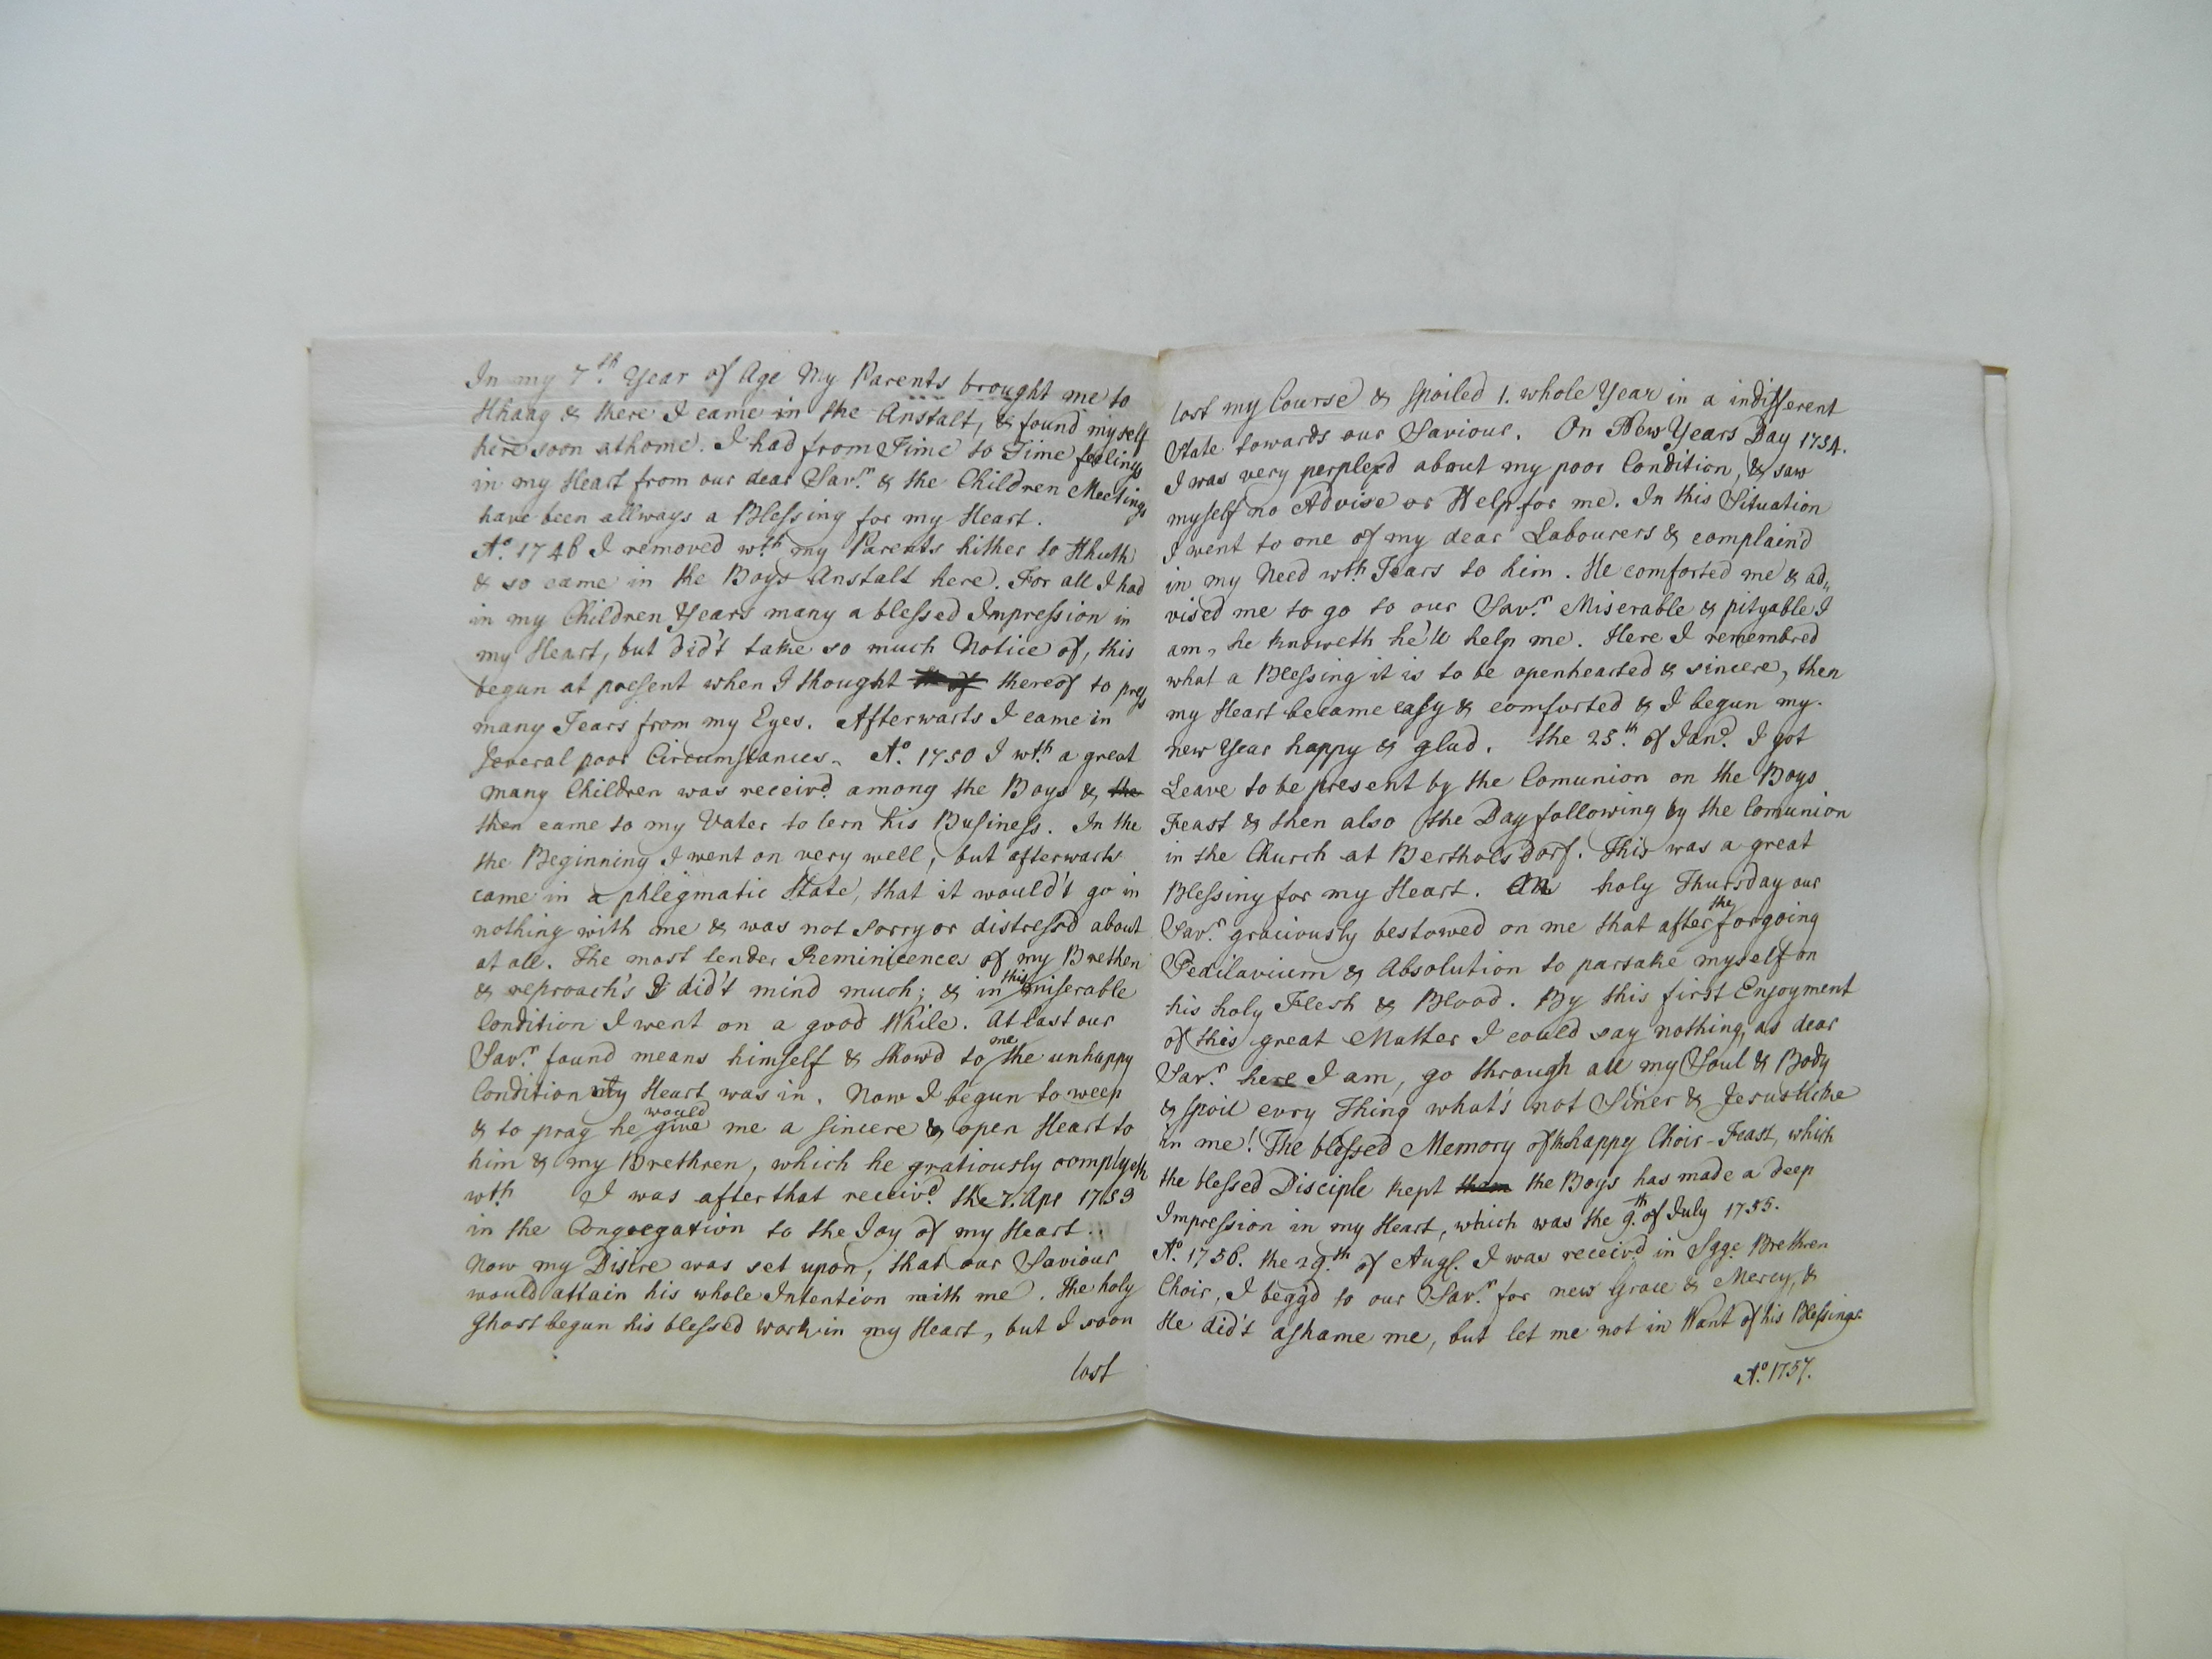 In my 7th. Year of Age My Parents brought me to
Hhaag & there I came in the Anstalt, & found myself
here soon athome. I had from Time to Time feelings
in my Heart from our dear Savr. & the Children Meetings
have been allways a Blessing for my Heart.
Ao. 1748 I removed wth. my Parents hither to Hhuth
& so came in the Boys Anstalt here. For all I had
in my Children Years many a blessed Impression in
my Heart, but did't take so much Notice of, this
begun at present when I thought thereof to press
many Tears from my Eyes. Afterwarts I came in
several poor Circumstances. Ao. 1750 I wth. a great
many Children was receivd. among the Boys & the
then came to my Vater to lern his Business. In the
the Beginning I went on very well, but afterwarts
came in a phlegmatic State, that it would't go in
nothing with me & was not sorry or distressd about
at all. The most tender Reminicences of my Brethen
& reproach's I did't mind much; & in this miserable
Condition I went on a good While. At last our
Savr. found means himself & show'd to me the unhappy
Condition my Heart was in. Now I begun to weep
& to pray he would give me a sincere & open Heart to
him & my Brethren, which he gratiously complyeth
wth. I was after that receivd. the 7. Apr 1753
in the Congregation to the Joy of my Heart..
Now my Disire was set upon, that our Saviour
would attain his whole Intention with me. The holy
Ghost begun his blessed work in my Heart, but I soon
lost
lost my Course & spoiled 1. whole Year in a indifferent
State towards our Saviour. On New Years Day 1754.
I was very perplexd about my poor Condition, & saw
myself no Advise or Help for me. In this Situation
I went to one of my dear Labourers & complain'd
in my Need wth. Tears to him. He comforted me & ad„
vised me to go to our Savr. Miserable & pityable I
am, he knoweth he'll help me. Here I remembred
what a Blessing it is to be openhearted & sincere, then
my Heart became easy & comforted & I begun my
new Year happy & glad. the 25th. of Jand. I got
Leave to be present by the Comunion on the Boys
Feast & then also the Day following by the Comunion
in the Church at Bertholsdorf. This was a great
Blessing for my Heart. On holy Thursday our
Savr. graciously bestowed on me that after the forgoing
Pedilavium & Absolution to partake myself on
his holy Flesh & Blood. By this first Enjoyment
of this great Matter I could say nothing, as dear
Savr. here I am, go through all my Soul & Body
& spoil evry Thing what's not Siner & Jesuslike
in me! The blessed Memory of the happy Choir-Feast, which
the blessed Disciple kept them the Boys has made a deep
Impression in my Heart, which was the 9th. of July 1755.
Ao. 1756. the 29th. of Augs. I was receivd in Sgge. Brethren
Choir, I begg'd to our Savr. for new Grace & Mercy, &
He did't ashame me, but let me not in Want of his Blessings.
Ao. 1757.